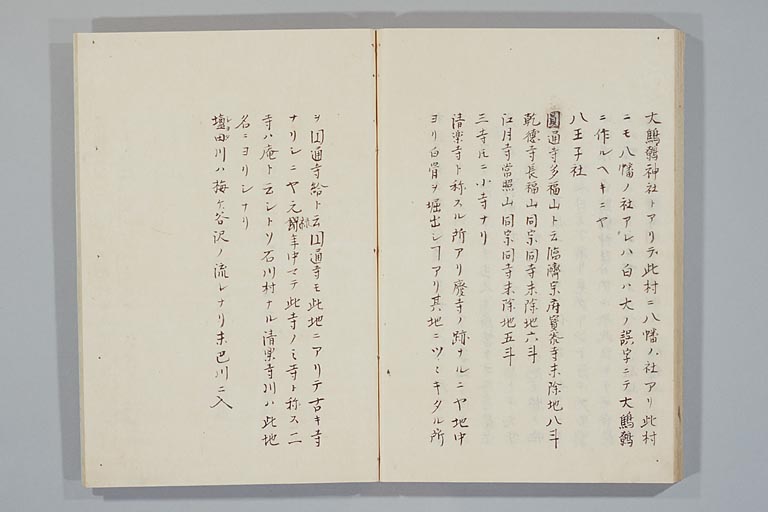 大鷦鷯神社トアリテ此村ニ八幡ノ社アリ此村
ニモ八幡ノ社アレハ白ハ大ノ誤字ニテ大鷦鷯
ニ作ルヘキニヤ
八王子社
圓通寺多福山ト云臨濟宗府寳泰寺末除地八斗
乾德寺長福山同宗同寺末除地六斗
江月寺當照山同宗同寺末除地五斗
三寺圧ニ小寺ナリ
清楽寺ト称スル所アリ廢寺ノ跡ナルニヤ地中
ヨリ白骨ヲ堀出シヿアリ其地ニツヽキタル所
ヲ囗通寺給ト云囗通寺モ此地ニアリテ古キ寺
ナリシニヤ元禄年中マテ此寺ノミ寺ト称ス二
寺ハ庵ト云シトソ石川村ナル清楽寺川ハ此地
名ニヨリシナリ
壇田川ハ梅ヶ谷沢ノ流レナリ末巴川ニ入